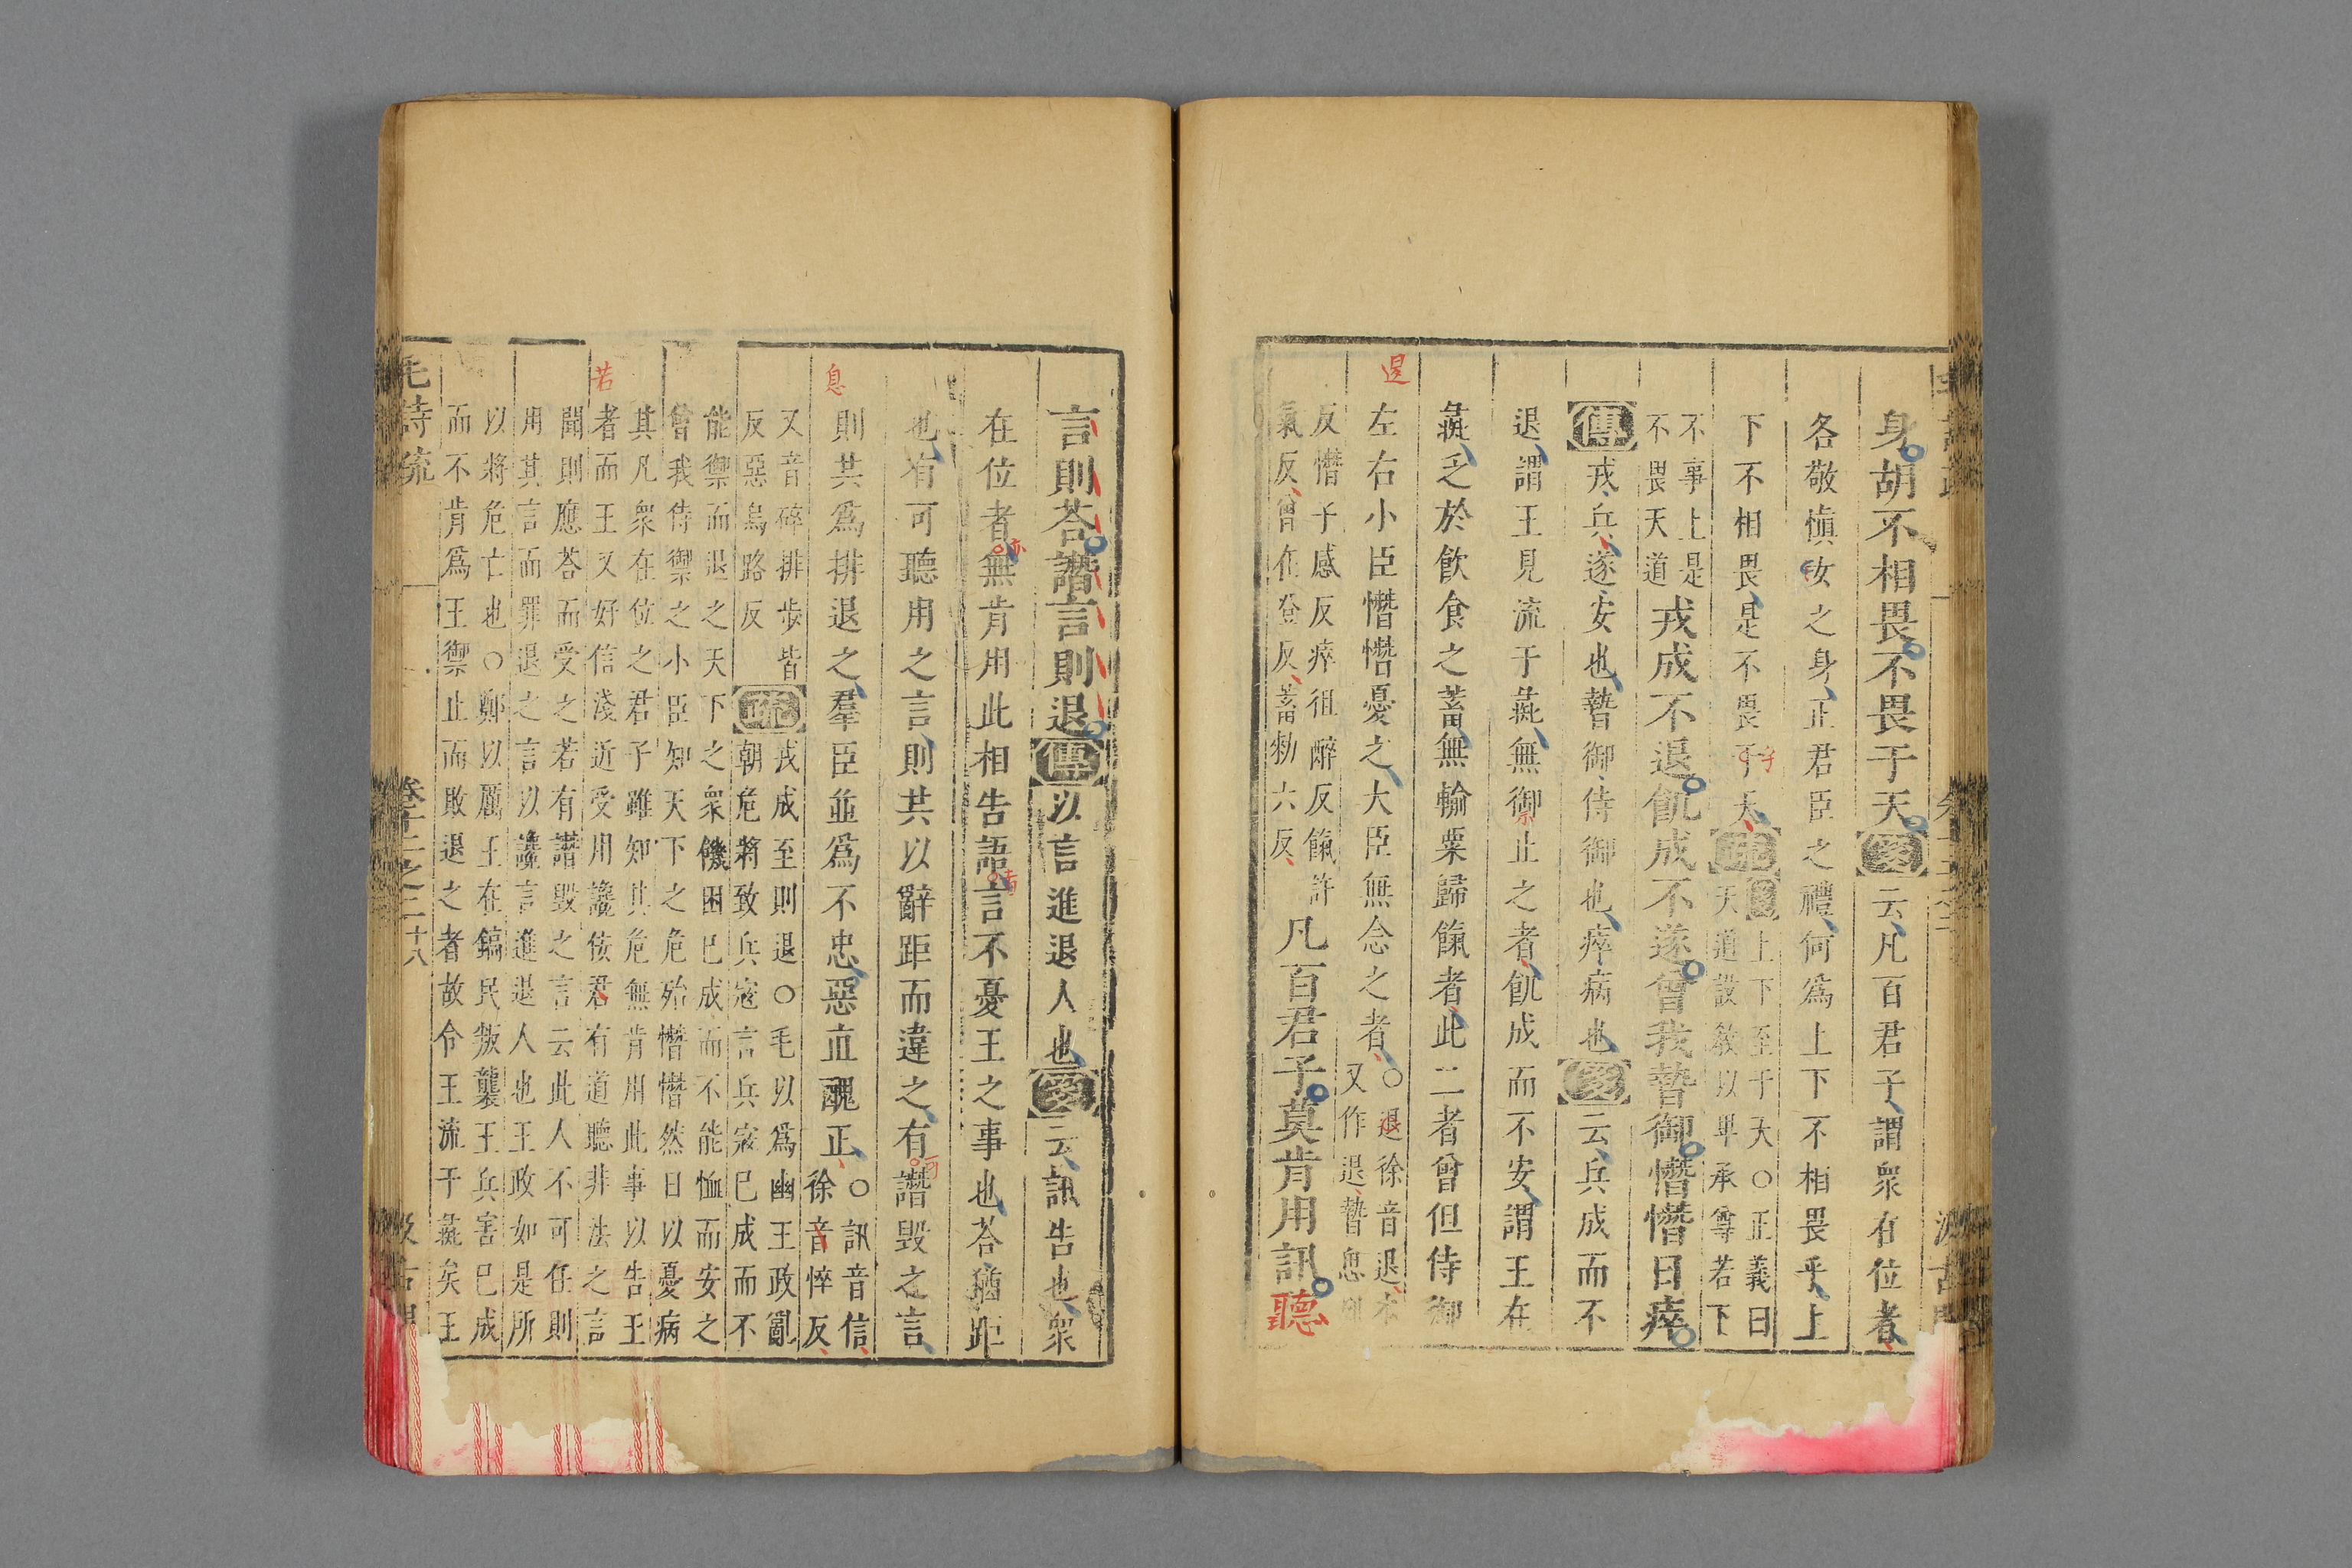 身胡不相畏不畏于天箋云凡百君子謂衆在位者
各敬愼女之身正君臣之禮何爲上下不相畏乎上
下不相畏是不畏于天疏箋上下至于天○正義曰
天道設敎以卑承尊若下
不事上是
不畏天道戎成不退飢成不遂曾我暬御憯憯日瘁
傳戎兵遂安也暬御侍御也瘁病也箋云兵成而不
退謂王見流于彘無御止之者飢成而不安謂王在
彘乏於飲食之蓄無輸粟歸餼者此二者曾但侍御
左右小臣憯憯憂之大臣無念之者○退徐音退本
又作退暬息列
反憯子感反瘁徂醉反餼許
氣反曾在登反蓄勑六反凡百君子莫肯用訊聽
退
禦
于
言則荅譖言則退傳以言進退人也箋云訊告也衆
在位者無肯用此相告語言不憂王之事也荅猶距
也有可聽用之言則共以辭距而違之有譖毀之言
則共爲排退之羣臣並爲不忠惡直醜正○訊音信
徐音悴反
又音碎排步皆
反惡烏路反疏戎成至則退○毛以爲幽王政亂
朝危將致兵寇言兵寇已成而不
能禦而退之天下之衆饑困已成而不能恤而安之
曾我侍禦之小臣知天下之危殆憯憯然日以憂病
其凡衆在位之君子雖知其危無肯用此事以告王
者而王又好信淺近受用讒佞君有道聽非法之言
聞則應荅而受之若有譖毀之言云此人不可任則
用其言而罪退之言以讒言進退人也王政如是所
以將危亡也○鄭以厲王在鎬民叛襲王兵害已成
而不肯爲王禦止而敗退之者故令王流于彘矣王
息
若
亦
可
毛詩疏
卷十二之二
十八